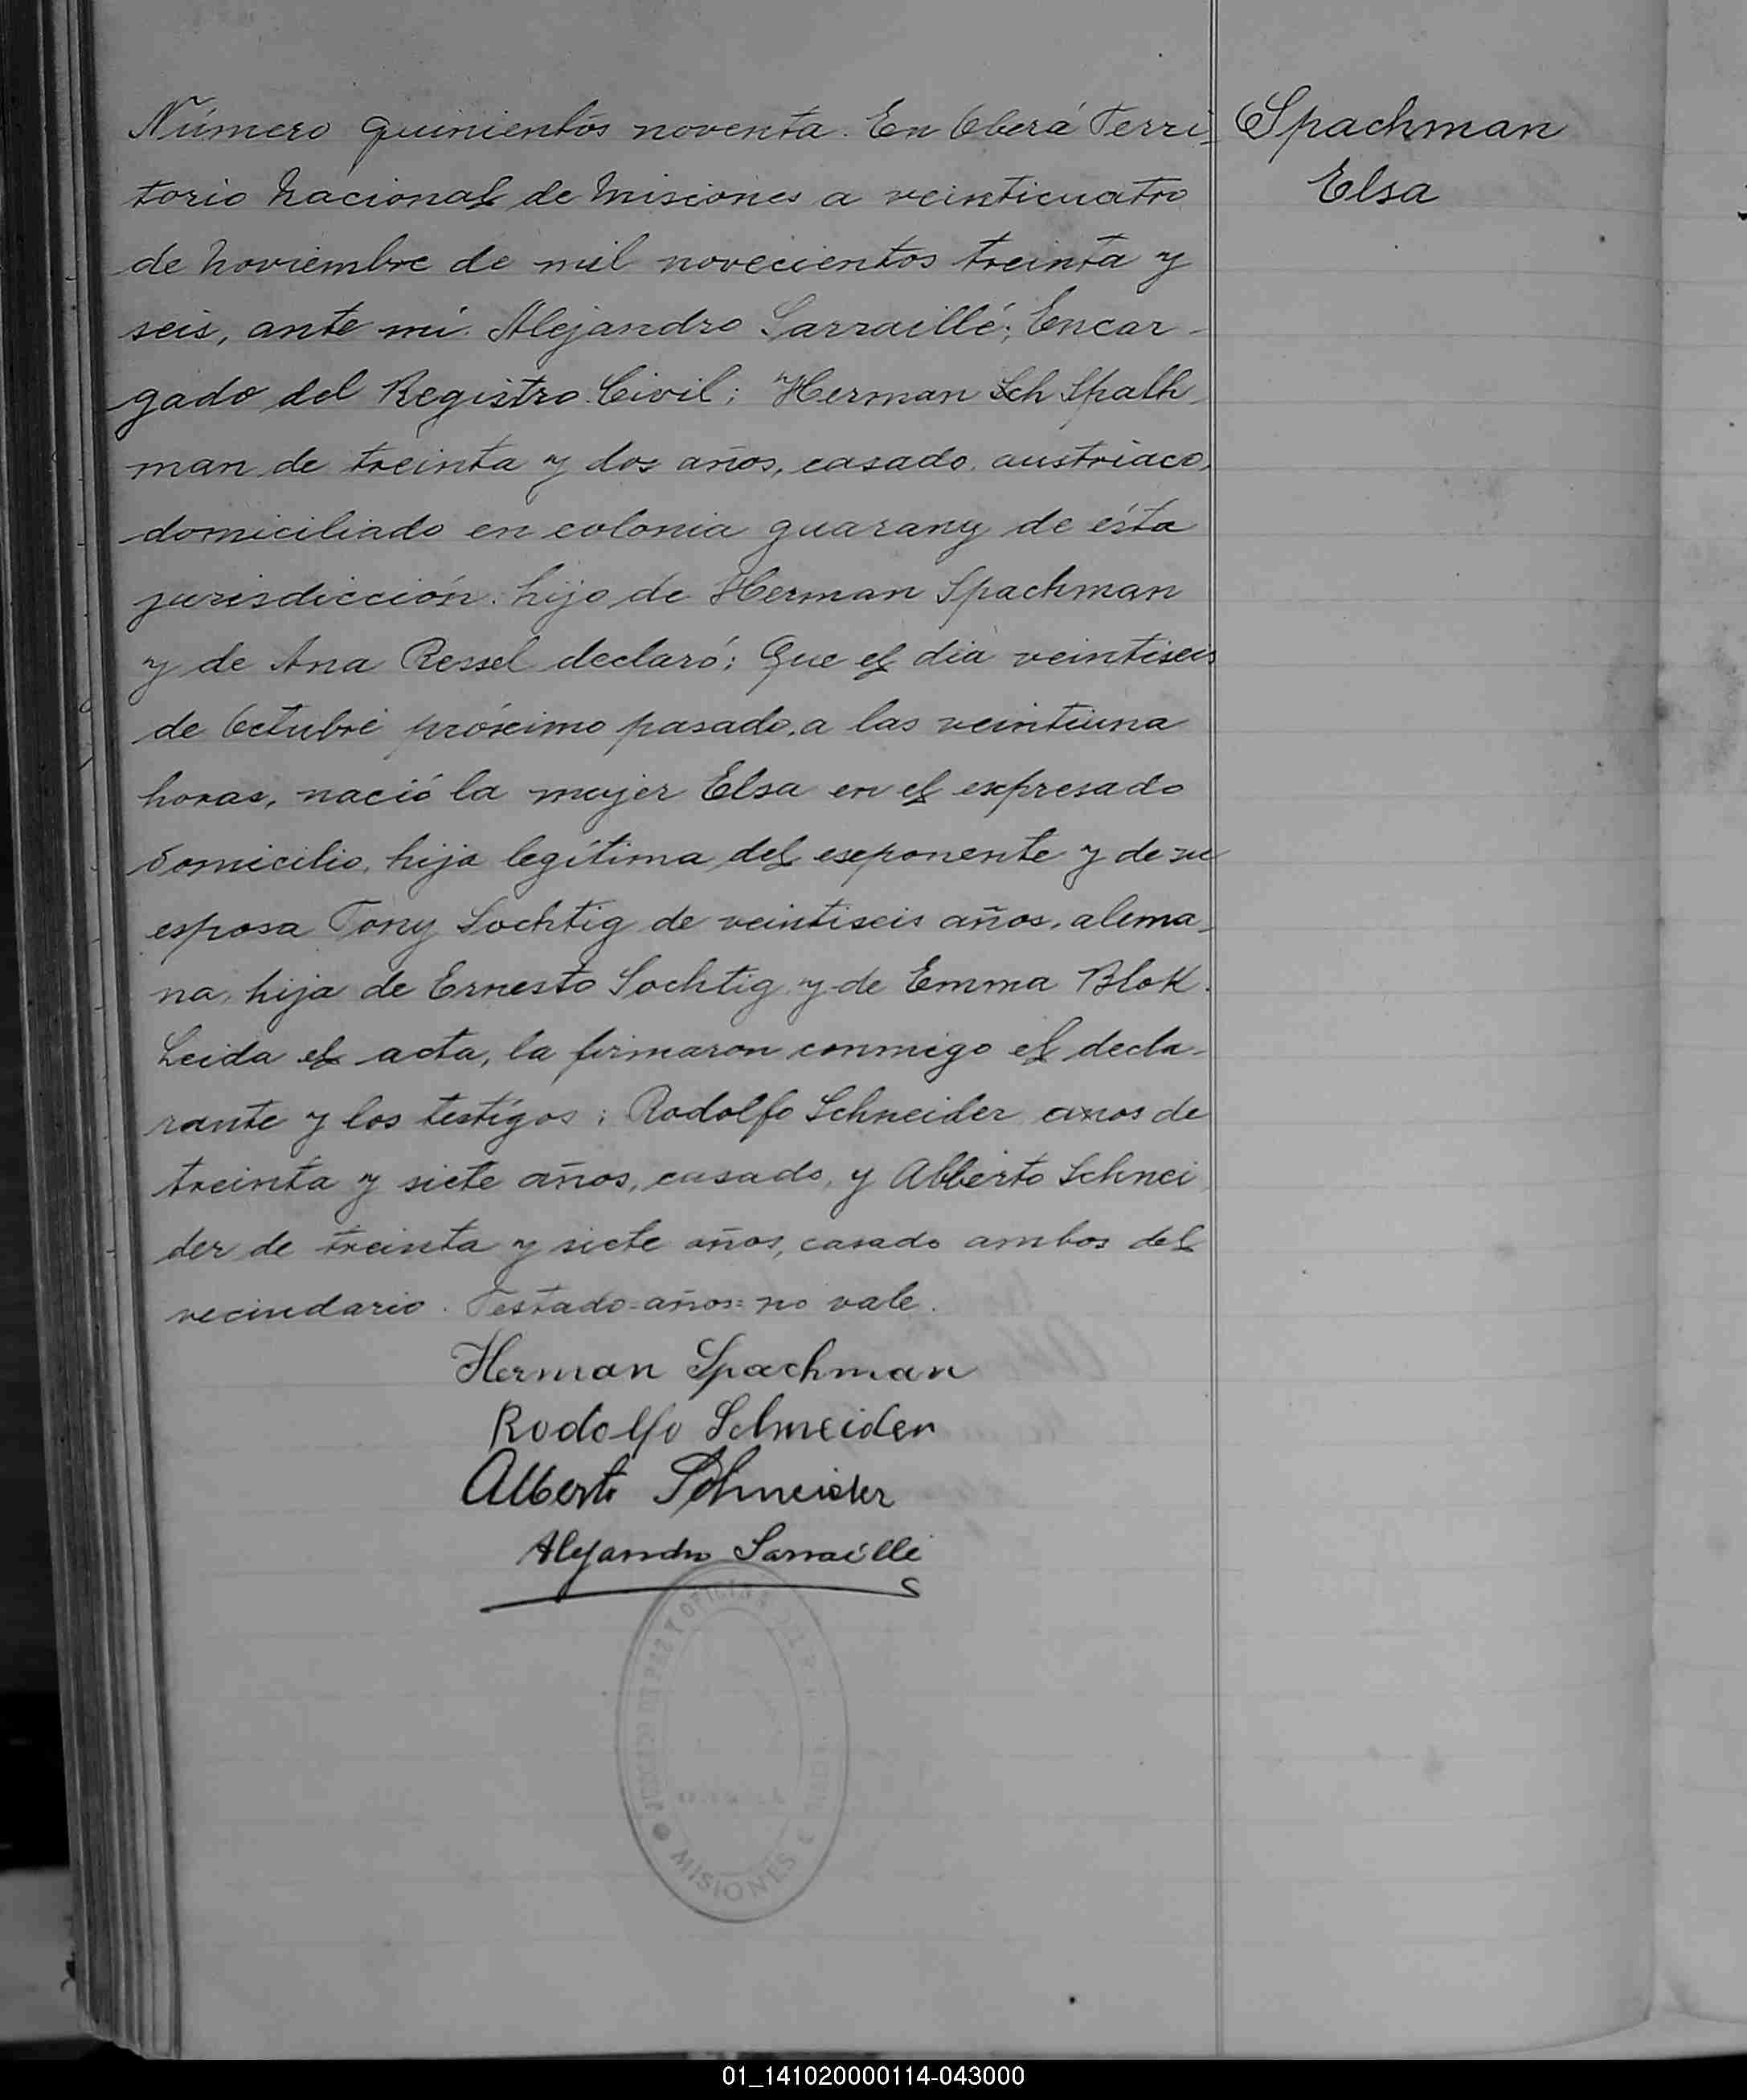 Spachman
Elsa
Número quinientos noventa. En Oberá Terri-
torio Nacional de Misiones a veinticuatro
de Noviembre de mil novecientos treinta y
seis, ante mí Alejandro Sarraillé; Encar-
gado del Registro Civil; Herman Sch Spath-
man de treinta y dos años, casado, austriaco,
domiciliado en colonia guarany de ésta
jurisdicción. hijo de Herman Spachman
y de Ana Ressel declaró; Que el día veintiseis
de Octubre próximo pasado, a las veintiuna
horas, nació la mujer Elsa en el expresado
domicilio, hija legítima del exponente y de su
esposa Tony Sochtig de veintiseis años, alema-
na, hija de Ernesto Sochtig y de Emma Blok.
Leida el acta, la firmaron conmigo el decla-
rante y los testigos; Rodolfo Schneider años de
treinta y siete años, casado, y Alberto Schnei
der de treinta y siete años, casado ambos del
vecindario. Testado=años=no vale.
Herman Spachman
Rodolfo Schneider
Alberto Schneider
Alejandro Sarraillé
MISIONES
01_141020000114-043000